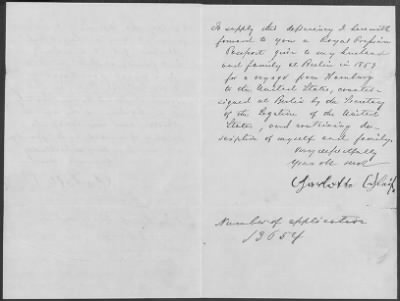 To supply this deficiency I herewith
forward to you a Royal Prussian
Passport given to my husband
and family at Berlin in 1853
for a voyage from Hamburg
to the United States, counter-
signed at Berlin by the Secretary
of the Legation of the United
States, and containing de-
scription of myself and family.
Very respectfully
Your obt
Charlotte
Number of application
13654